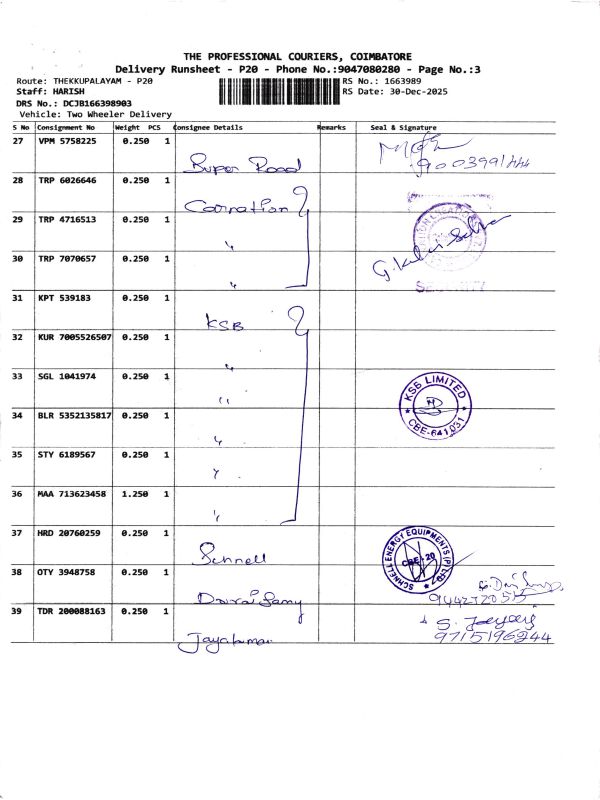 THE PROFESSIONAL COURIERS, COIMBATORE
Delivery Runsheet - P20 - Phone No.:9047080280 - Page No.:3
Route: THEKKUPALAYAM - P20 RS No.: 1663989
Staff: HARISH RS Date: 30-Dec-2025
DRS No.: DCJB166398903
Vehicle: Two Wheeler Delivery
S No Consignment No Weight PCS Consignee Details Remarks Seal & Signature
27 VPM 5758225 0.250 1 Super Road
28 TRP 6026646 0.250 1 Carnation
29 TRP 4716513 0.250 1 "
30 TRP 7070657 0.250 1 "
SECURITY
31 KPT 539183 0.250 1 KSB
32 KUR 7005526507 0.250 1 "
33 SGL 1041974 0.250 1 "
KSB LIMITED
CBE-641 031
34 BLR 5352135817 0.250 1 "
35 STY 6189567 0.250 1 "
36 MAA 713623458 1.250 1 "
37 HRD 20760259 0.250 1 Schnell
SCHNELL ENERGY EQUIPMENTS (P) LTD
CBE-20
38 OTY 3948758 0.250 1 Doraisamy
39 TDR 200088163 0.250 1 Jayakumar
9715196244